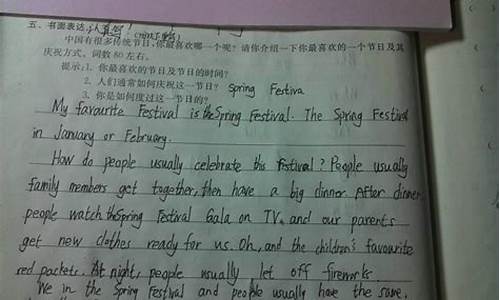 五、书面表达 认真写!
中国有很多传统节日,你最喜欢哪一个呢?请你介绍一下你最喜欢的一个节日及其
庆祝方式。词数80左右。
提示:1. 你最喜欢的节日及节日的时间?
2. 人们通常如何庆祝这一节日? Spring Festiva
3. 你是如何度过这一节日的?
My favourite Festival is the Spring Festival. The Spring Festival
in January or February.
How do people usually celebrate this festival? People usually
family members get together, then have a big dinner. After dinner,
people watch the Spring Festival Gala on TV. and our parents
get new clothes ready for us. Oh, and the children's favourite
red packets. At night, people usually let off fireworks
We in the Spring Festival and people usually have the same.